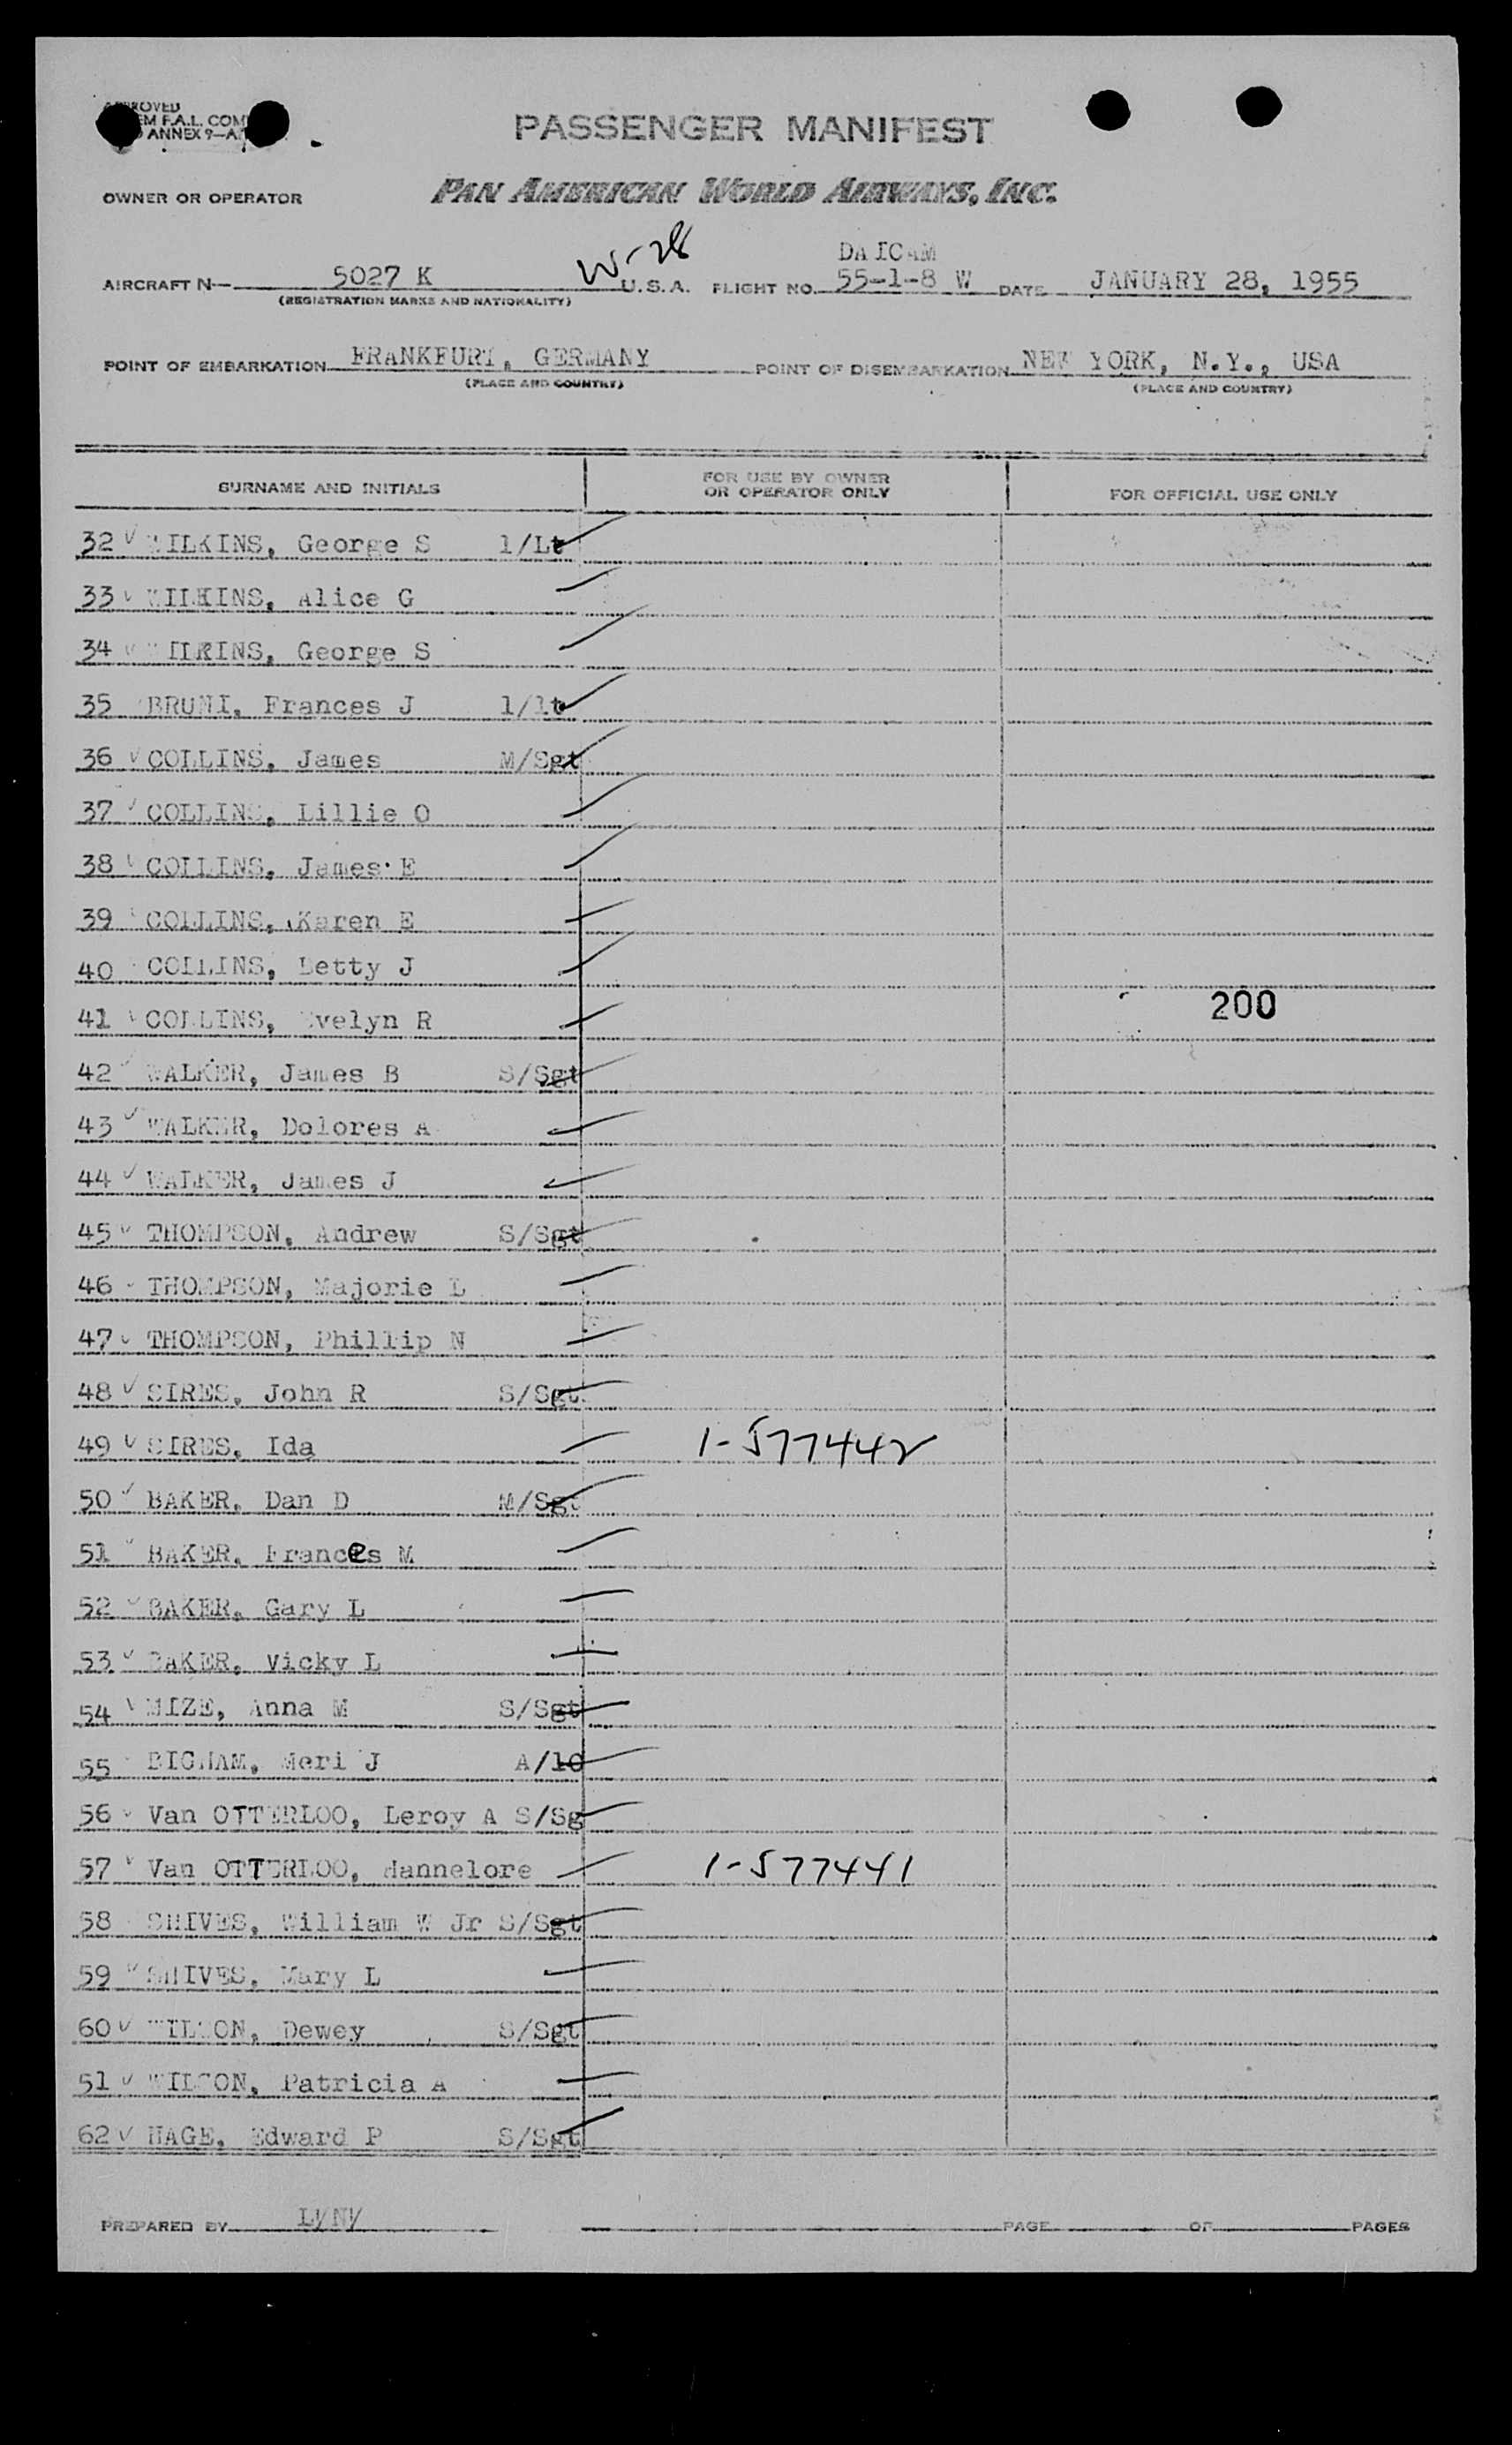 PASSENGER MANIFEST
OWNER OR OPERATOR PAN AMERICAN WORLD AIRWAYS, INC.
W-28
DAICAM
AIRCRAFT N— 5027 K U.S.A. FLIGHT NO. 55-1-8 W DATE JANUARY 28, 1955
(REGISTRATION MARKS AND NATIONALITY)
POINT OF EMBARKATION FRANKFURT, GERMANY POINT OF DISEMBARKATION NEW YORK, N.Y., USA
(PLACE AND COUNTRY) (PLACE AND COUNTRY)
SURNAME AND INITIALS FOR USE BY OWNER OR OPERATOR ONLY FOR OFFICIAL USE ONLY
32 WILKINS, George S 1/Lt
33 WILKINS, Alice G
34 WILKINS, George S
35 BRUNI, Frances J 1/lt
36 COLLINS, James M/Sgt
37 COLLINS, Lillie O
38 COLLINS, James E
39 COLLINS, Karen E
40 COLLINS, Betty J
41 COLLINS, Evelyn R 200
42 WALKER, James B S/Sgt
43 WALKER, Dolores A
44 WALKER, James J
45 THOMPSON, Andrew S/Sgt
46 THOMPSON, Majorie L
47 THOMPSON, Phillip N
48 SIRES, John R S/Sgt
49 SIRES, Ida 1-577442
50 BAKER, Dan D M/Sgt
51 BAKER, Frances M
52 BAKER, Gary L
53 BAKER, Vicky L
54 MIZE, Anna M S/Sgt
55 BIGHAM, Meri J A/1C
56 Van OTTERLOO, Leroy A S/Sg
57 Van OTTERLOO, Hannelore 1-577441
58 SHIVES, William W Jr S/Sgt
59 SHIVES, Mary L
60 WILSON, Dewey S/Sgt
51 WILSON, Patricia A
62 HAGE, Edward P S/Sgt
PREPARED BY PAGE OF PAGES